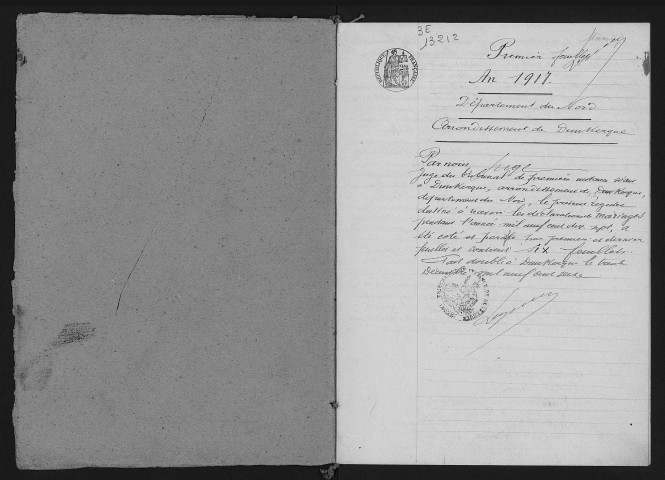 3E
13212
Premier feuillet
An 1917.
Département du Nord
Arrondissement de Dunkerque
Par nous, juge
Juge du Tribunal de première instance séant
à Dunkerque, arrondissement de Dunkerque,
département du Nord, le présent registre
destiné à recevoir les déclarations de mariages
pendant l'année mil neuf cent dix sept, a
été coté et paraphé sur premier et dernier
feuillet et contient six feuillets.
Fait double à Dunkerque le
Décembre mil neuf cent seize